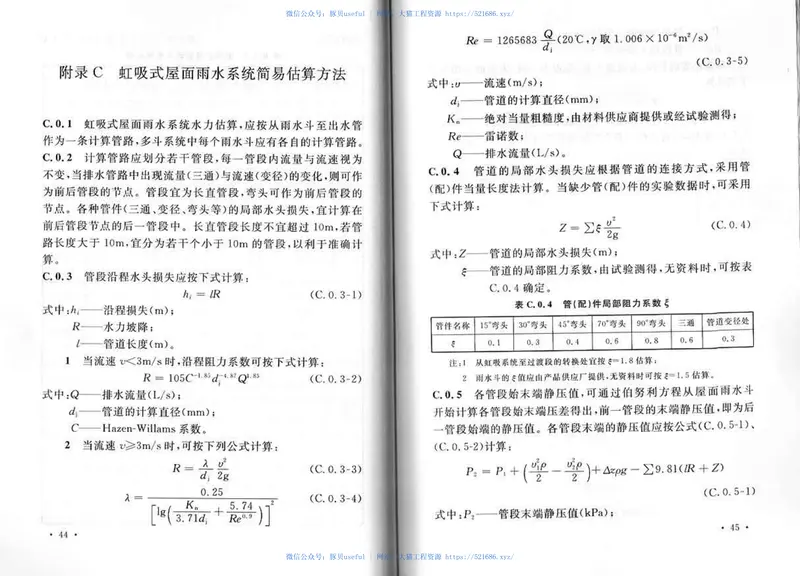 微信公众号：豚贝useful / 网站：大猫工程资源 https://521686.xyz/
附录C 虹吸式屋面雨水系统简易估算方法
C.0.1 虹吸式屋面雨水系统水力估算，应按从雨水斗至出水管
作为一条计算管路，多斗系统中每个雨水斗应有各自的计算管路。
C.0.2 计算管路应划分若干管段，每一管段内流量与流速视为
不变，当排水管路中出现流量(三通)与流速(变径)的变化，则可作
为前后管段的节点。管段宜为长直管段，弯头可作为前后管段的
节点。各种管件(三通、变径、弯头等)的局部水头损失，宜计算在
前后管段节点的后一管段中。长直管段长度不宜超过 10m，若管
路长度大于 10m，宜分为若干个小于 10m 的管段，以利于准确计
算。
C.0.3 管段沿程水头损失应按下式计算：
hi = lR (C.0.3-1)
式中：hi——沿程损失(m)；
R——水力坡降；
l——管道长度(m)。
1 当流速 v<3m/s 时，沿程阻力系数可按下式计算：
R = 105C^-1.85 dj^-4.87 Q^1.85 (C.0.3-2)
式中：Q——排水流量(L/s)；
dj——管道的计算直径(mm)；
C——Hazen-Willams 系数。
2 当流速 v≥3m/s 时，可按下列公式计算：
R = λ/dj v²/2g (C.0.3-3)
λ = 0.25/[lg(Kn/3.71dj + 5.74/Re^0.9)]² (C.0.3-4)
· 44 ·
Re = 1265683 Q/dj (20℃，γ 取 1.006×10⁻⁶m²/s)
(C.0.3-5)
式中：υ——流速(m/s)；
dj——管道的计算直径(mm)；
Kn——绝对当量粗糙度，由材料供应商提供或经试验测得；
Re——雷诺数；
Q——排水流量(L/s)。
C.0.4 管道的局部水头损失应根据管道的连接方式，采用管
(配)件当量长度法计算。当缺少管(配)件的实验数据时，可采用
下式计算：
Z = Σξ υ²/2g (C.0.4)
式中：Z——管道的局部水头损失(m)；
ξ——管道的局部阻力系数，由试验测得，无资料时，可按表
C.0.4 确定。
表 C.0.4 管(配)件局部阻力系数 ξ
管件名称 15°弯头 30°弯头 45°弯头 70°弯头 90°弯头 三通 管道变径处
ξ 0.1 0.3 0.4 0.6 0.8 0.6 0.3
注：1 从虹吸系统至过渡段的转换处宜按 ξ=1.8 估算；
2 雨水斗的 ξ 值应由产品供应厂提供，无资料时可按 ξ=1.5 估算。
C.0.5 各管段始末端静压值，可通过伯努利方程从屋面雨水斗
开始计算各管段始末端压差得出，前一管段的末端静压值，即为后
一管段始端的静压值。各管段末端的静压值应按公式(C.0.5-1)、
(C.0.5-2)计算：
P₂ = P₁ + (υ₁²ρ/2 − υ₂²ρ/2) + Δzρg − Σ9.81(lR + Z)
(C.0.5-1)
式中：P₂——管段末端静压值(kPa)；
· 45 ·
微信公众号：豚贝useful / 网站：大猫工程资源 https://521686.xyz/